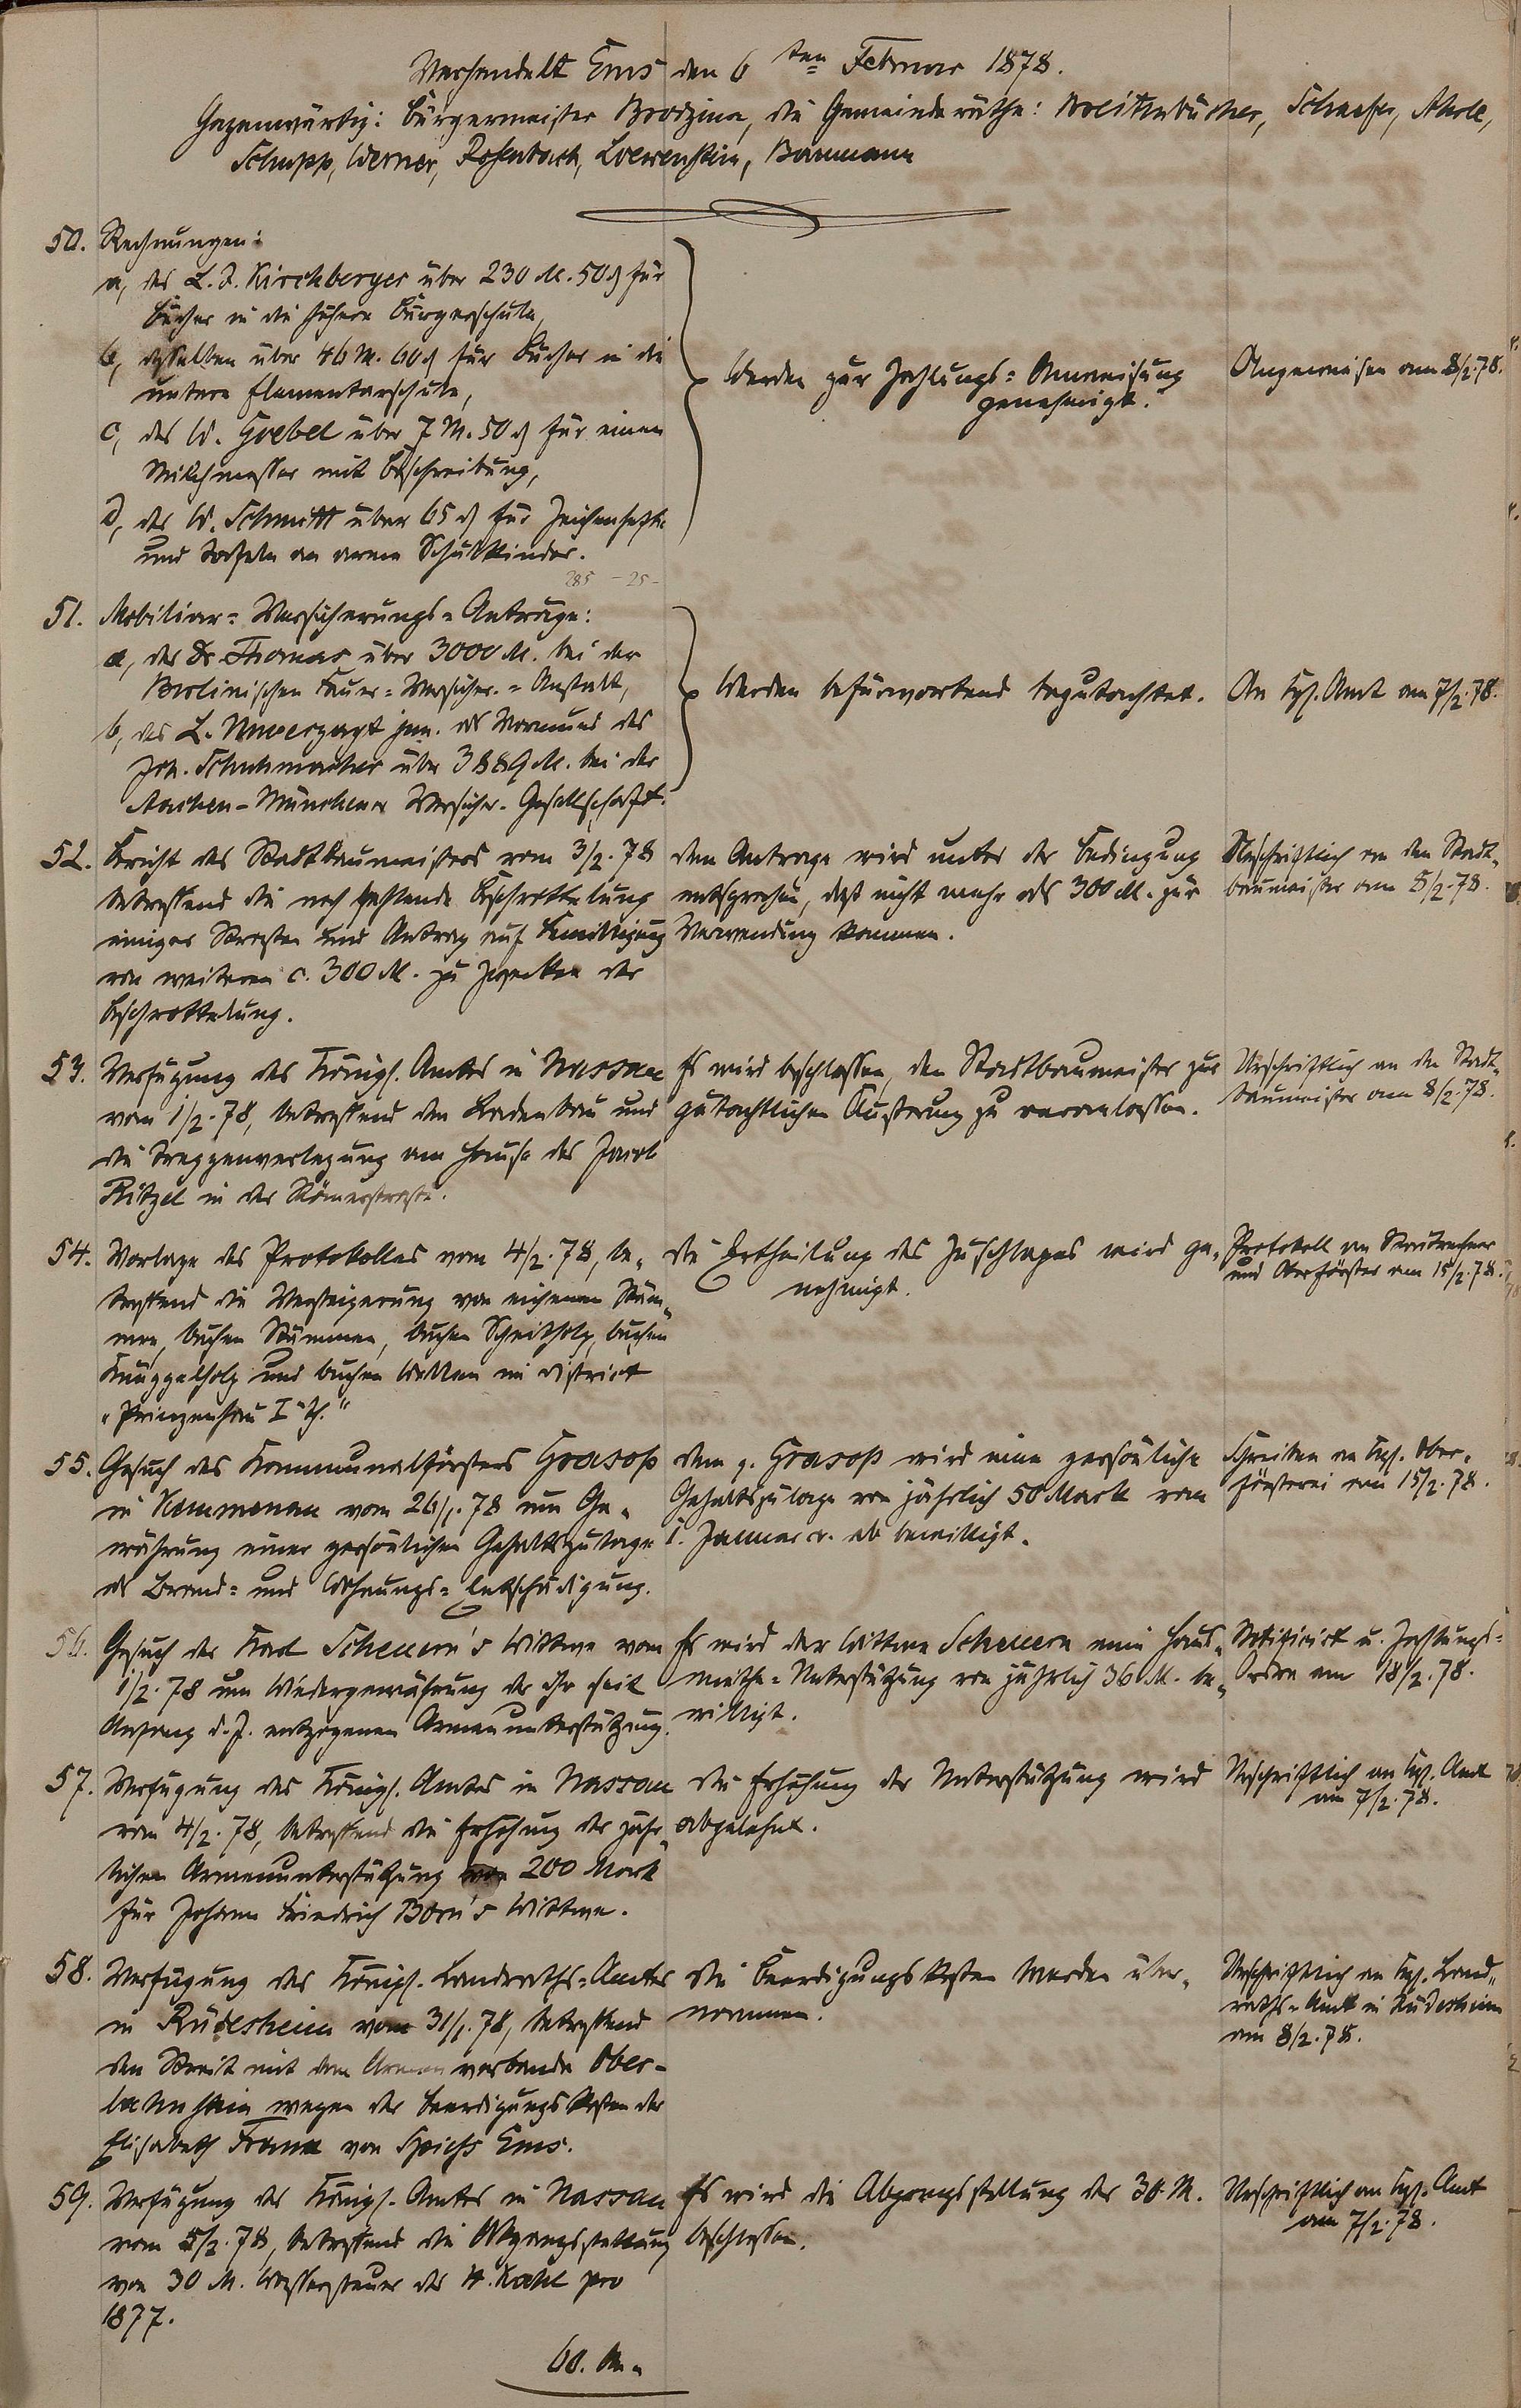 Verhandelt Ems den 6ten Februar 1878.
Gegenwärtig: Bürgermeister Brodzina, die Gemeinderäthe: Breitenbücher, Schaefer, Ahrle,
Schupp, Werner, Rosenbach, Loewenstein, Baumann
50. Rechnungen:
a, des L. J. Kirchberger über 230 M. 50 ₰ für
Bücher in die höhere Bürgerschule,
b, desselben über 46 M. 60 ₰ für Bücher in die
untere Elementarschule,
c, des W. Goebel über 7 M. 50 ₰ für einen
Milchmesser mit Beschreibung,
d, des W. Schmitt über 65 ₰ für Zeichenhefte
und Tafeln an arme Schulkinder.
285 - 25 -
Werden zur Zahlungs-Anweisung
genehmigt.
Angewiesen am 8/2.78.
51. Mobiliar-Versicherungs-Anträge:
a, des Dr Thomas über 3000 M. bei der
Berlinischen Feuer-Versicher.-Anstalt,
b, des L. Unverzagt jun. als Vormund des
Joh. Schuhmacher über 3889 M. bei der
Aachen-Münchener Versicher.-Gesellschaft.
Werden befürwortend begutachtet.
An Kgl. Amt am 7/2.78.
52. Bericht des Stadtbaumeisters vom 3/2.78
betreffend die noch fehlende Beschrottelung
einiger Straßen und Antrag auf Bewilligung
von weiteren c. 300 M. zu Zwecken der
Beschrottelung.
Dem Antrage wird unter der Bedingung
entsprochen, daß nicht mehr als 300 M. zur
Verwendung kommen.
Urschriftlich an den Stadt-
baumeister am 8/2.78.
53. Verfügung des Königl. Amtes in Nassau
vom 1/2.78, betreffend den Ladenbau und
die Treppenverlegung am Hause des Jacob
Ritzel in der Römerstraße.
Es wird beschlossen, den Stadtbaumeister zur
gutachtlichen Äußerung zu veranlassen.
Urschriftlich an den Stadt-
baumeister am 8/2.78.
54. Vorlage des Protokolles vom 4/2.78, be-
treffend die Versteigerung von eichenen Stäm-
men, buchen Stämmen, buchen Scheitholz, buchen
Knüppelholz und buchen Wellen im District
"Prinzenhau I Th."
Die Ertheilung des Zuschlages wird ge-
nehmigt.
Protokoll an Stadtrechner
und Oberförster am 15/2.78.
55. Gesuch des Kommunalförsters Grasoß
in Kemmenau vom 26/1.78 um Ge-
währung einer persönlichen Gehaltszulage
als Brand- und Wohnungs-Entschädigung.
Dem p. Grasoß wird eine persönliche
Gehaltszulage von jährlich 50 Mark vom
1. Januar cr. ab bewilligt.
Schreiben an Kgl. Ober-
försterei am 15/2.78.
56. Gesuch der Karl Scheuern's Wittwe vom
1/2.78 um Wiedergewährung der ihr seit
Anfang d. J. entzogenen Armenunterstützung.
Es wird der Wittwe Scheuern eine Haus-
miethe-Unterstützung von jährlich 36 M. be-
willigt.
Notificirt u. Zahlungs-
Ordre am 18/2.78.
57. Verfügung des Königl. Amtes in Nassau
vom 4/2.78, betreffend die Erhöhung der jähr-
lichen Armenunterstützung von 200 Mark
für Johann Friedrich Born's Wittwe.
Die Erhöhung der Unterstützung wird
abgelehnt.
Urschriftlich an Kgl. Amt
am 7/2.78.
58. Verfügung des Königl. Landraths-Amtes
in Rüdesheim vom 31/1.78, betreffend
den Streit mit dem Armenverbande Ober-
lahnstein wegen der Beerdigungskosten der
Elisabeth Frank von Spieß Ems.
Die Beerdigungskosten werden über-
nommen.
Urschriftlich an Kgl. Land-
raths-Amt in Rüdesheim
am 8/2.78.
59. Verfügung des Königl. Amtes in Nassau
vom 5/2.78, betreffend die Abgangsstellung
von 30 M. Wassersteuer des H. Kahl pro
1877.
Es wird die Abgangsstellung der 30 M.
beschlossen.
Urschriftlich an Kgl. Amt
am 7/2.78.